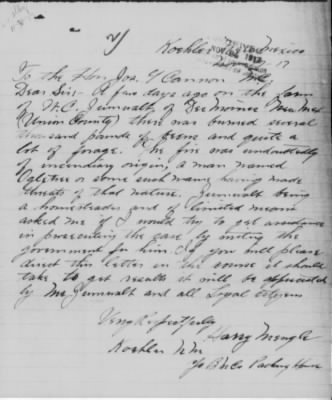 Koehler New Mexico
17
To the Hon. Jos. Y Cannon
Dear Sir:- A few days ago on the farm
of W.C. Zumwalt of Des Moines New Mex
(Union County) there was burned several
thousand pounds of beans and quite a
lot of forage. The fire was undoubtedly
of incendiary origin, a man named
or some such name having made
threats of that nature. Zumwalt being
a homesteader and of limited means
asked me if I would try to get assistance
in prosecuting the case, by writing the
government for him. If you will please
direct this letter on the course it should
take to get results it will be appreciated
by Mr. Zumwalt and all Loyal citizens
Very Respectfully
Harry Mengle
Koehler N.M.
Packing House